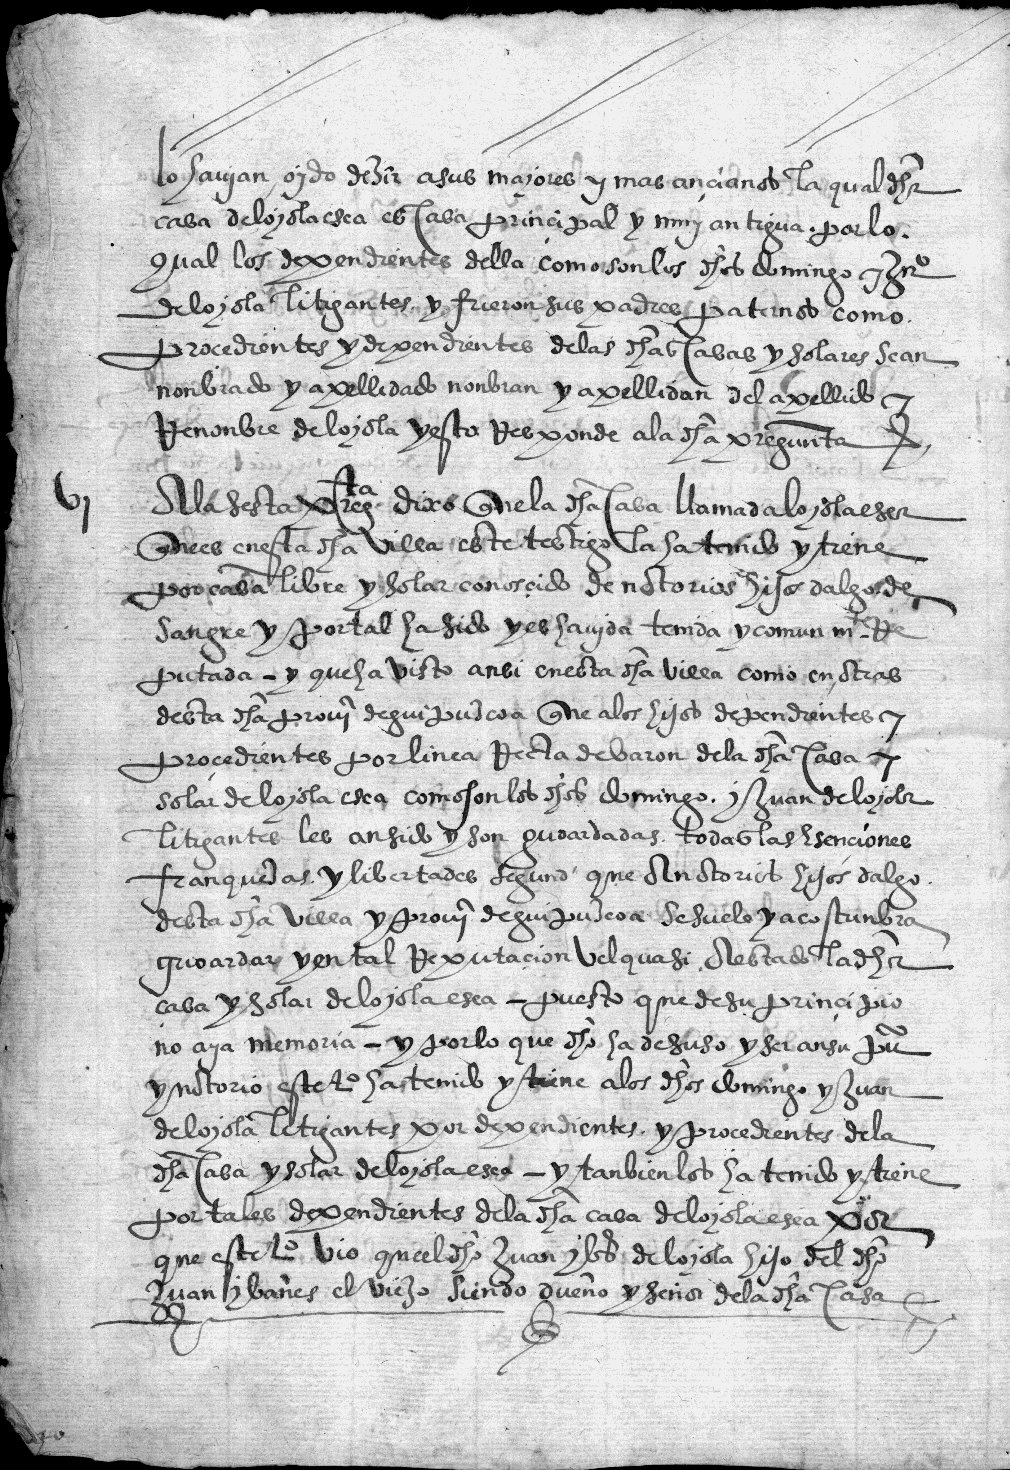 lo havian oydo dezir a sus mayores y mas ançianos la qual dha
casa de loyola esea es casa prinçipal y muy antigua por lo
qual los dependientes della como son los dhos domingo y Juº
de loyola litigantes y fueron sus padres paternos como
proçedientes y dependientes de las dhas casas y solares sean
nonbrado y apellidado nonbran y apellidan del apellido y
Renonbre de loyola y esto Responde a la dha pregunta
vj A la sesta pregta dixo que la dha casa llamada loyola
que es en esta dha villa este testigo la ha tenido y tiene
por casa libre y solar conosçido de notorios hijos dalgo de
sangre y por tal ha sido y es havida tenida y comunmte Re
putada - y que ha visto ansi en esta dha villa como en otras
desta dha provj de guipuscoa que a los hijos dependientes y
proçedientes por linea Recta de baron de la dha casa y
solar de loyola esea como son los dhos domingo y Juan de loyola
litigantes les an sido y son guoardadas todas las esençiones
franquezas y libertades segund que A notorios hijos dalgo
desta dha villa y provj de guipuscoa se suele y acostunbra
guoardar y en tal Reputaçion vel quasi A estado la dha
casa y solar de loyola esea - puesto que de su prinçipio
no aya memoria - y por lo que dho ha de suso y ser ansi puco
y notorio este tº ha tenido y tiene a los dhos domingo y Juan
de loyola litigantes por dependientes y proçedientes de la
dha casa y solar de loyola esea - y tanbien los ha tenido y tiene
por tales dependientes de la dha casa de loyola esea por
que este tº vio que el dho Juan ybs de loyola hijo del dho
Juan ybañes el viejo siendo dueño y señor de la dha casa